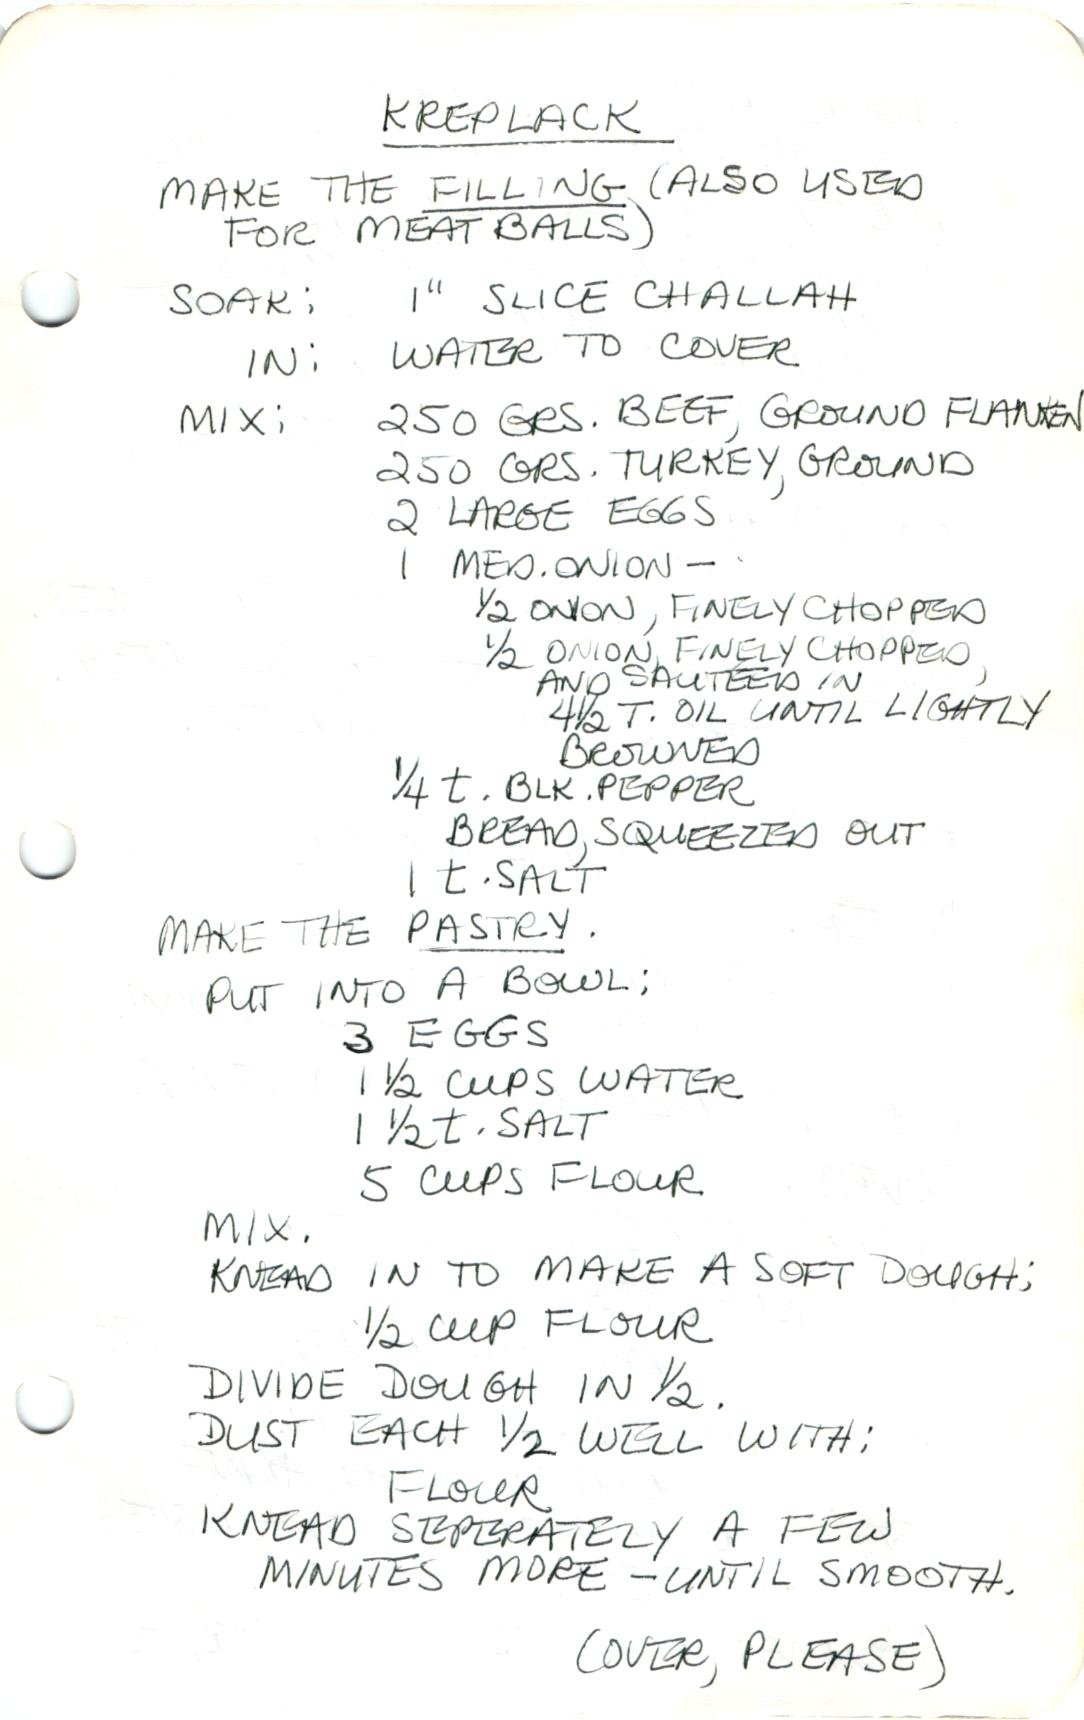 KREPLACK
MAKE THE FILLING (ALSO USED
FOR MEATBALLS)
SOAK: 1" SLICE CHALLAH
IN: WATER TO COVER
MIX: 250 GRS. BEEF, GROUND FLANKEN
250 GRS. TURKEY, GROUND
2 LARGE EGGS
1 MED. ONION -
1/2 ONION, FINELY CHOPPED
1/2 ONION, FINELY CHOPPED,
AND SAUTEED IN
4 1/2 T. OIL UNTIL LIGHTLY
BROWNED
1/4 t. BLK. PEPPER
BREAD, SQUEEZED OUT
1 t. SALT
MAKE THE PASTRY.
PUT INTO A BOWL:
3 EGGS
1 1/2 CUPS WATER
1 1/2 t. SALT
5 CUPS FLOUR
MIX.
KNEAD IN TO MAKE A SOFT DOUGH:
1/2 CUP FLOUR
DIVIDE DOUGH IN 1/2.
DUST EACH 1/2 WELL WITH:
FLOUR
KNEAD SEPERATELY A FEW
MINUTES MORE - UNTIL SMOOTH.
(OVER, PLEASE)